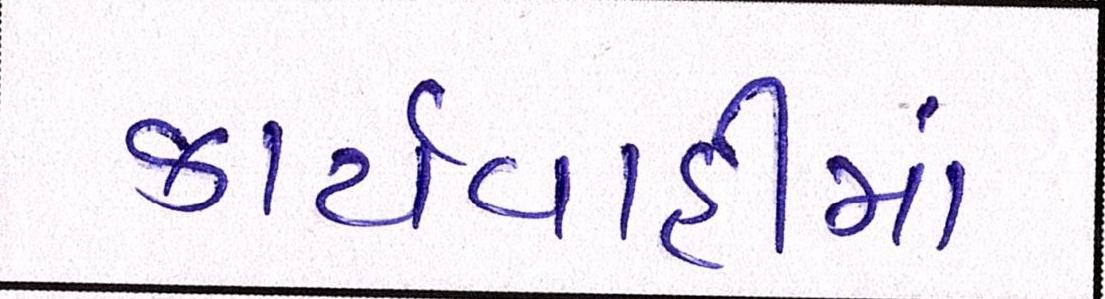 કાર્યવાહીમાં